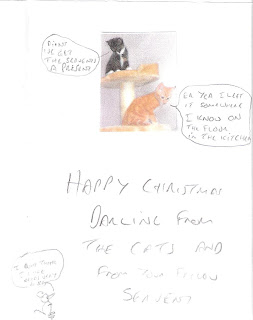 DIDNT
WE GET
THE SERVENTS
A PRESENT
ER YER I LEFT
IT SOMEWHERE
I KNOW ON
THE FLOOR
IN THE KITCHEN
HAPPY CHRISTMAS
DARLING FROM
THE CATS AND
FROM YOUR FELLOW
SERVENT